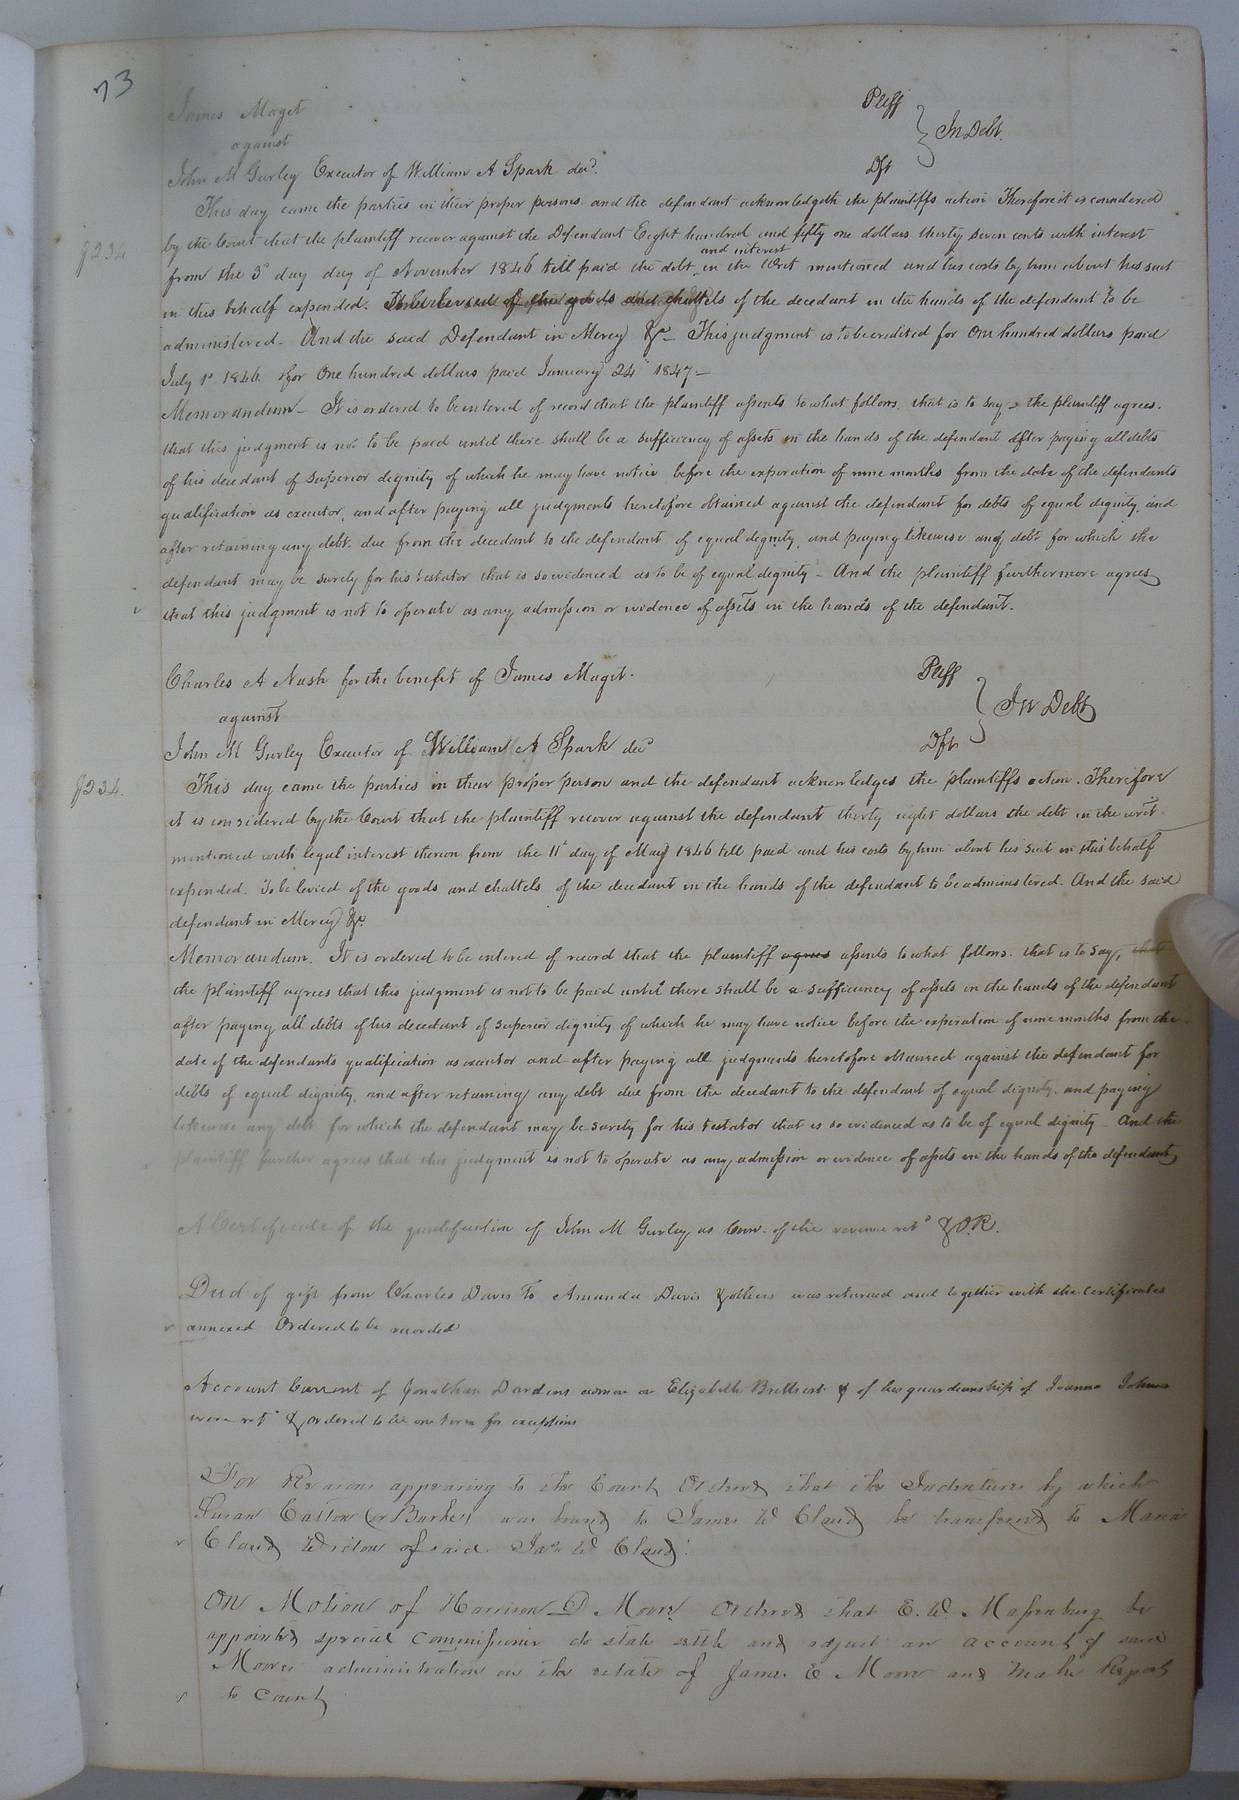 73
James Maget Pltff
against } In Debt.
John M Gurley Executor of William A Spark decd. Dft
This day came the parties in their proper persons and the defendant acknowledgeth the plaintiffs action Therefore it is considered
by the Court that the plaintiff recover against the Defendant Eight hundred and fifty one dollars thirty seven cents with interest
and interest
from the 3d day day of November 1846 till paid the debt in the Writ mentioned and his costs by him about his suit
in this behalf expended. To be levied of the goods and chattels of the decedant in the hands of the defendant to be
administered - And the said Defendant in Mercy &c - This judgment is to be credited for One hundred dollars paid
July 1st 1846 & for One hundred dollars paid January 24th 1847 -
Memorandum - It is ordered to be entered of record that the plaintiff assents to what follows, that is to say - the plaintiff agrees.
that this judgment is not to be paid until there shall be a sufficiency of assets in the hands of the defendant after paying all debts
of his decedant of superior dignity of which he may have notice before the expiration of nine months from the date of the defendants
qualification as executor, and after paying all judgments heretofore obtained against the defendant for debts of equal dignity, and
after retaining any debt due from the decedant to the defendant of equal dignity, and paying likewise any debt for which the
defendant may be surety for his testator that is so evidenced as to be of equal dignity - And the plaintiff furthermore agrees
that this judgment is not to operate as any admission or evidence of assets in the hands of the defendant.
Charles A Nash for the benefit of James Maget. Pltff
against } In Debt
John M Gurley Executor of William A Spark decd Dft
This day came the parties in their proper person and the defendant acknowledges the plaintiffs action. Therefore
it is considered by the Court that the plaintiff recover against the defendant thirty eight dollars the debt in the writ
mentioned with legal interest thereon from the 11th day of May 1846 till paid and his costs by him about his suit in this behalf
expended. To be levied of the goods and chattels of the decedant in the hands of the defendant to be administered. And the said
defendant in Mercy &c
Memorandum. It is ordered to be entered of record that the plaintiff agrees assents to what follows. that is to say, that
the plaintiff agrees that this judgment is not to be paid until there shall be a sufficiency of assets in the hands of the defendant
after paying all debts of his decedant of superior dignity of which he may have notice before the expiration of nine months from the
date of the defendants qualification as executor and after paying all judgments heretofore obtained against the defendant for
debts of equal dignity, and after retaining any debt due from the decedant to the defendant of equal dignity, and paying
likewise any debt for which the defendant may be surety for his testator that is so evidenced as to be of equal dignity And the
plaintiff further agrees that this judgment is not to operate as any admission or evidence of assets in the hands of the defendant
A Certificate of the qualification of John M Gurley as Com. of the revenue retd & O.R.
Deed of gift from Charles Davis to Amanda Davis & others was returned and together with the certificates
annexed Ordered to be recorded
Account Current of Jonathan Dardens admon on Elizabeth & of his guardianship of Joanna
were retd & ordered to lie one term for exceptions
For Reasons appearing to the Court Ordered that the Indenture by which
Susan Caston (or Burke) was bound to James W Claud be transfered to Maria
Claud Widow of said Jas W Claud.
On Motion of Harrison D Moore Ordered that E. W. Massenburg be
appointed special commissioner do state settle and adjust an account of said
Moores administration on the estate of James E Moore and make Report
to Court